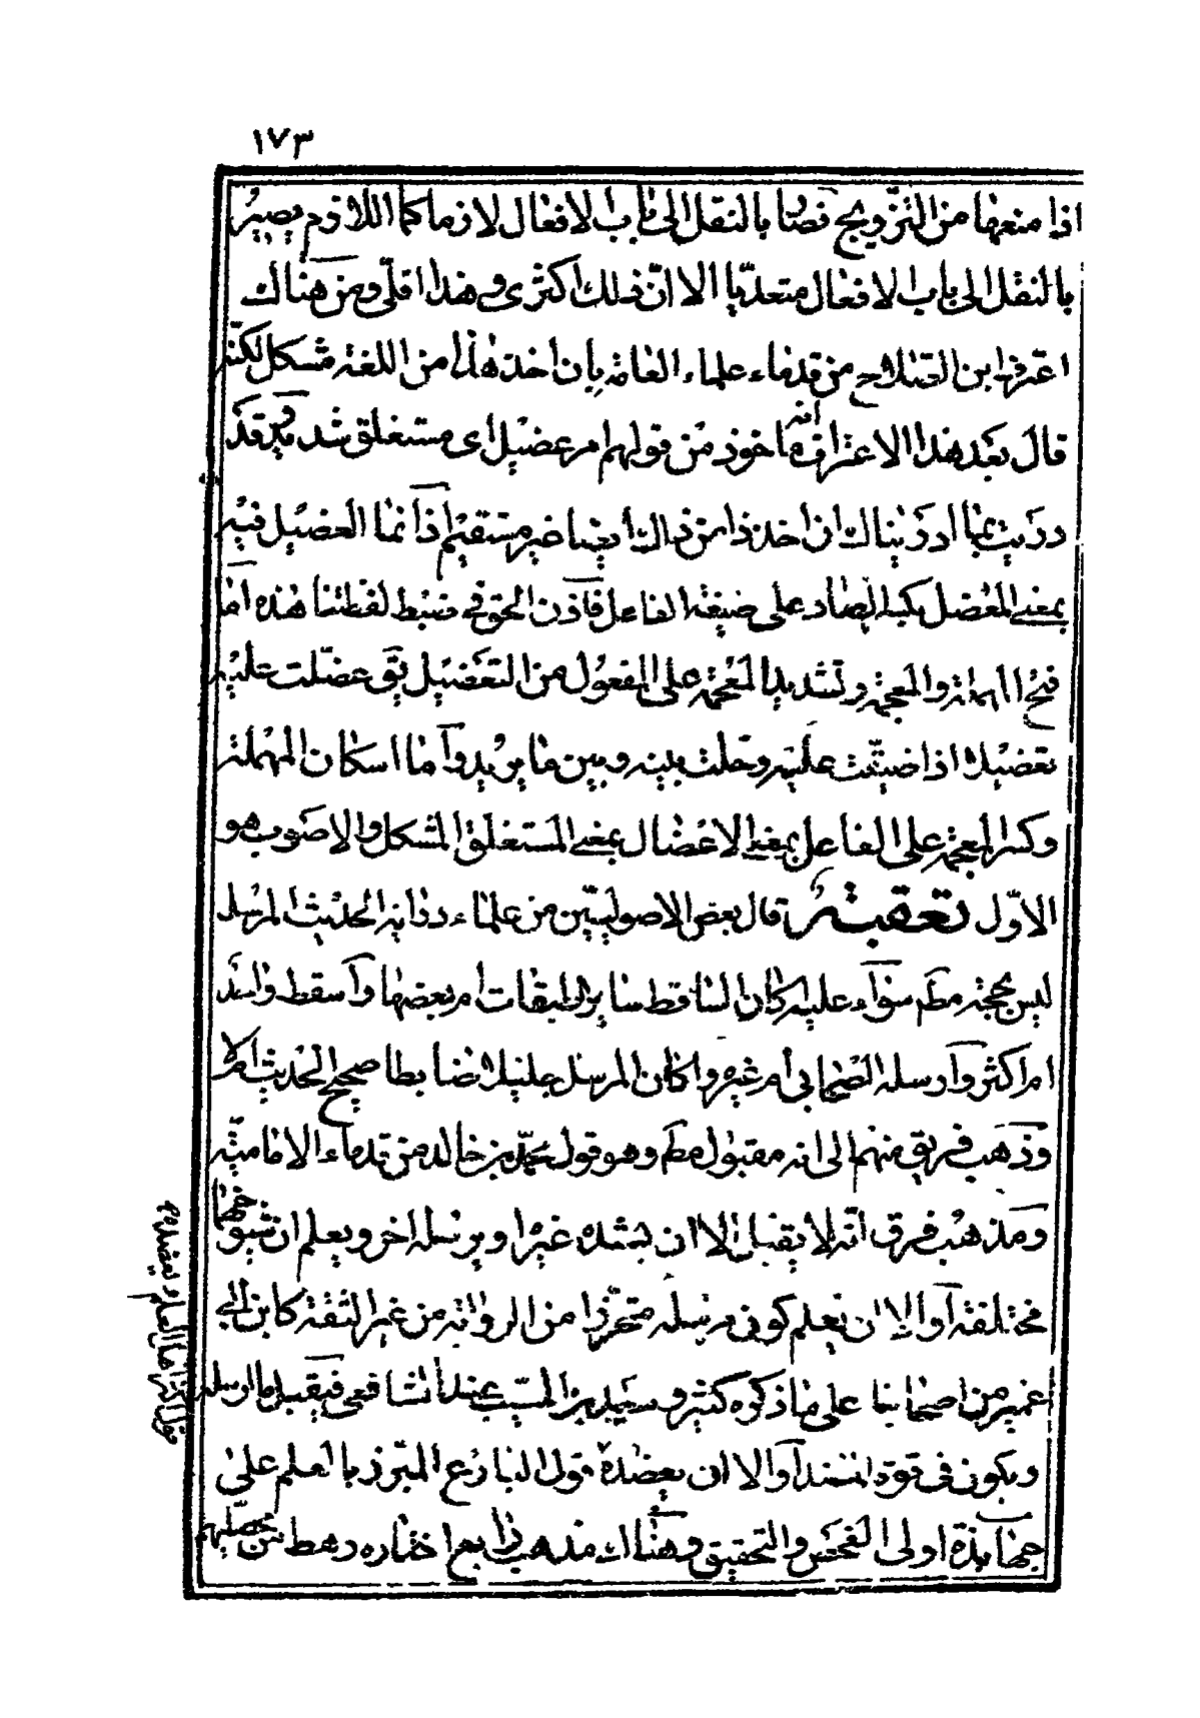 ١٧٣
اذا منعها من التزويج فصار بالنقل الى باب الافعال لازما كما اللازم يصير
بالنقل الى باب الافعال متعديا الا ان ذلك اكثرى وهذا اقلى ومن هناك
اعترف ابن الصلاح من قدماء علماء العامة بان اخذ هذا من اللغة مشكل لكنه
قال بعد هذا الاعتراف انه ماخوذ من قولهم امر عضيل اى مستغلق شديد وقد
دريت بما ادريناك ان اخذ ذا من ذاك ايضا غير مستقيم اذ انما العضيل فيه
بمعنى المعضل بكسر الضاد على صيغة الفاعل فاذن الحق فى ضبط لفظتنا هذه اما
فتح المهملة والمعجمة وتشديد المعجمة على المفعول من التعضيل يق عضلت عليه
تعضيلا اذا ضيقت عليه وحلت بينه وبين ما يريد واما اسكان المهملة
وكسر المعجمة على الفاعل بمعنى الاعضال بمعنى المستغلق المشكل والاصوب هو
الاول تعقبة قال بعض الاصوليين من علماء دراية الحديث المرسل
ليس بحجة مطم سواء عليه كان الساقط ساير الطبقات ام بعضها وآسقط واحد
ام اكثر وآرسله الصحابى ام غيره واكان المرسل جليلا ضابطا صحيح الحديث ام لا
وذهب فريق منهم الى انه مقبول مطم وهو قول محمد بن خالد من قدماء الامامية
ومذهب فرق انه لا يقبل الا ان يسنده غيره او يرسله اخر ويعلم ان شيوخهما
مختلفة آوالا ان يعلم كون مرسله متحرزا من الرواية من غير الثقة كابن ابى
عمير من اصحابنا على ما ذكره كثير وسعيد بن المسيب عند الشافعى فيقبل ما ارسله
ويكون فى قوة المسند آوالا ان يعضده قول البارع المبرز بالعلم على
جهابذة اولى الفحص والتحقيق وهناك مذهب رابع اختاره رهط من محصليهم